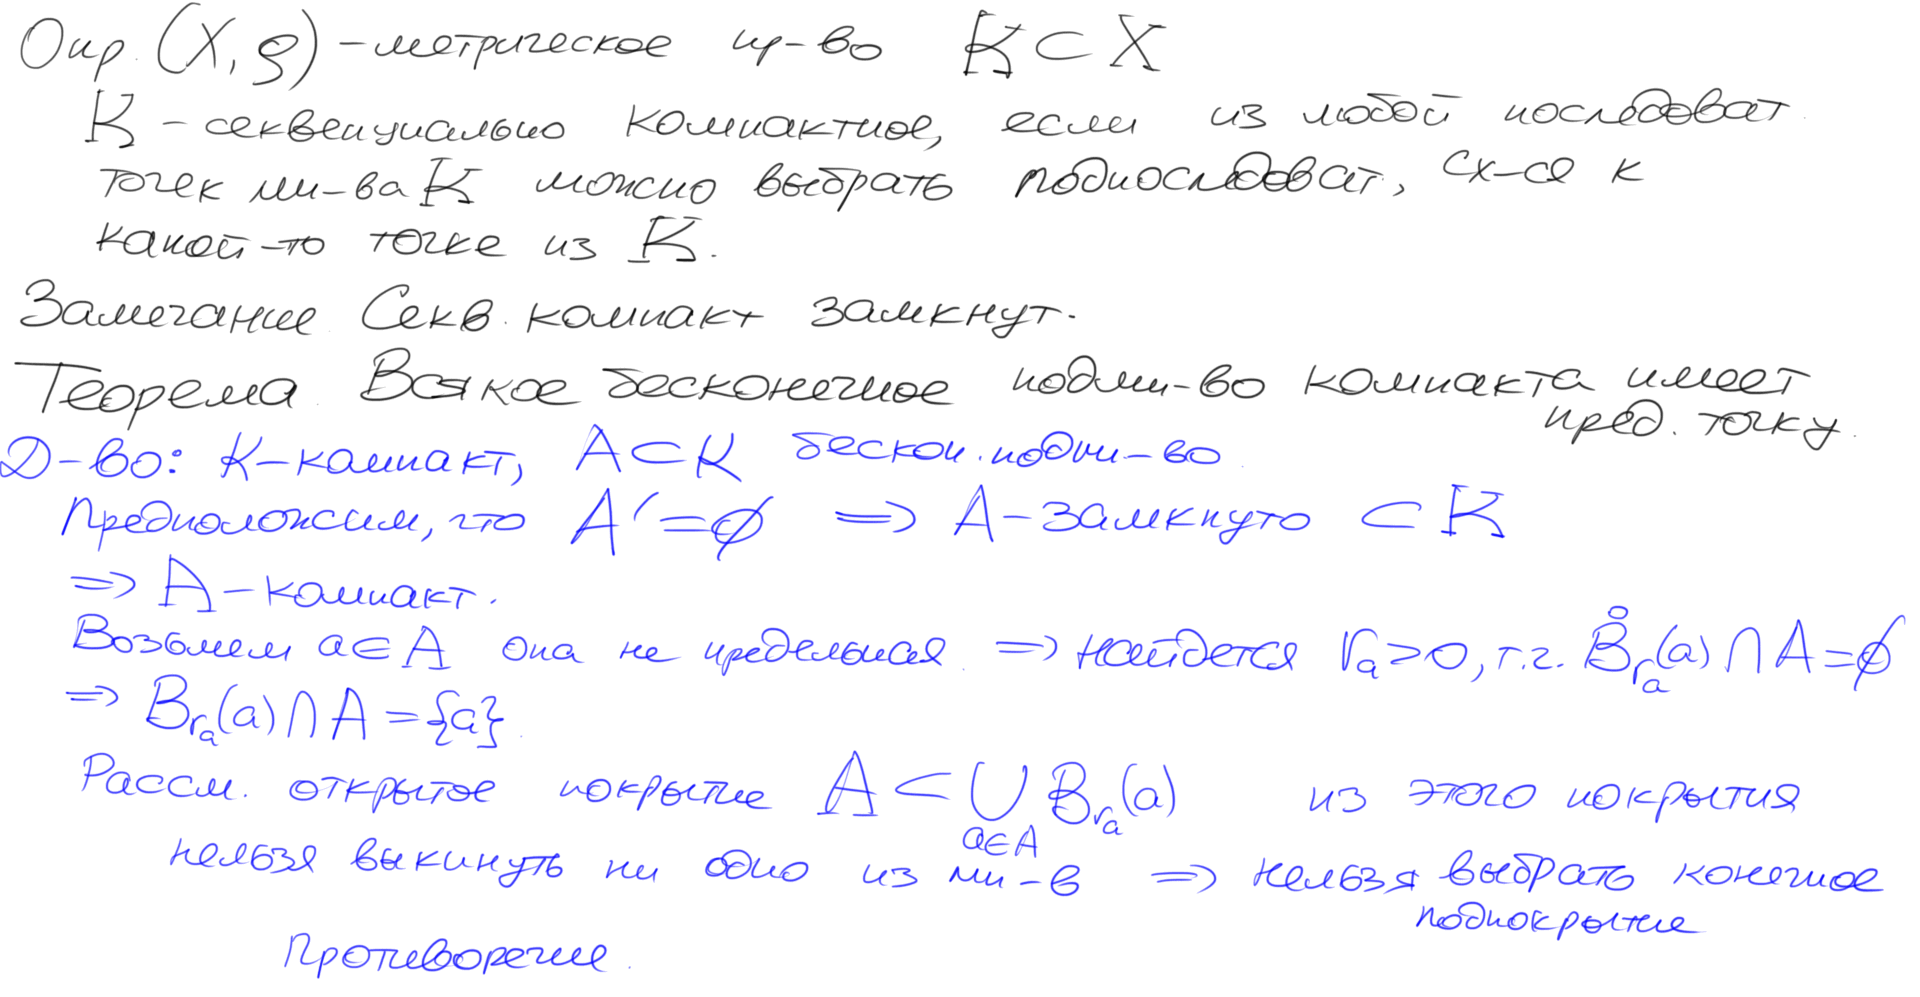 Опр. (X, ρ) – метрическое пр-во K ⊂ X
K – секвенциально компактное, если из любой последоват.
точек мн-ва K можно выбрать подпоследоват., сх-ся к
какой-то точке из K.
Замечание Секв. компакт замкнут.
Теорема. Всякое бесконечное подмн-во компакта имеет
пред. точку.
Д-во: K – компакт, A ⊂ K бескон. подмн-во.
Предположим, что A' = ∅ ⇒ A – замкнуто ⊂ K
⇒ A – компакт.
Возьмем a ∈ A она не предельная. ⇒ найдется r_a > 0, т.ч. B̊_{r_a}(a) ∩ A = ∅
⇒ B_{r_a}(a) ∩ A = {a}.
Рассм. открытое покрытие A ⊂ ⋃_{a∈A} B_{r_a}(a) из этого покрытия
нельзя выкинуть ни одно из мн-в ⇒ нельзя выбрать конечное
подпокрытие
Противоречие.